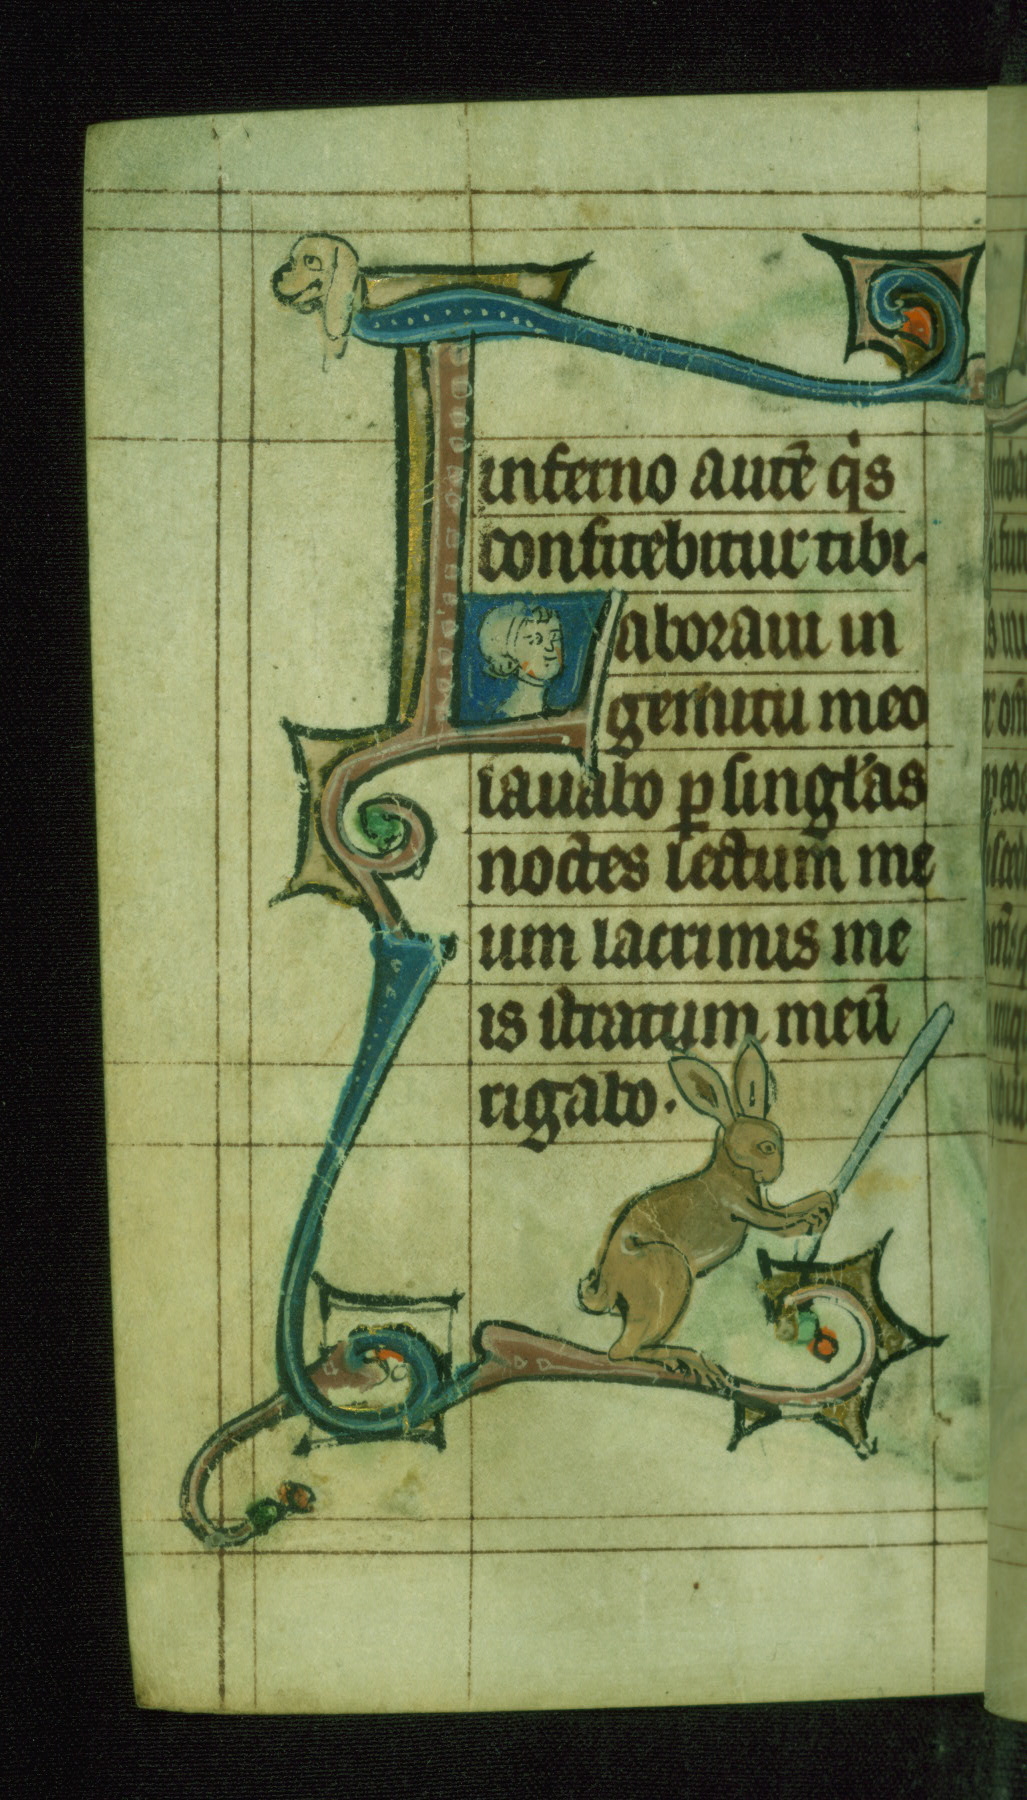 inferno autē qͥs
confitebitur tibi.
Laboraui in
gemitu meo
lauabo ꝑ singl'as
noctes lectum me
um lacrimis me
is stratum meū
rigabo.